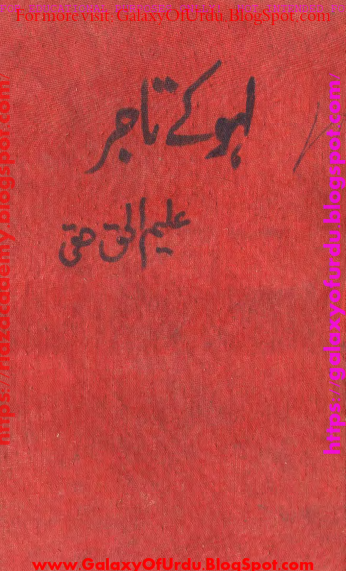 For more visit: GalaxyOfUrdu.BlogSpot.com
لہو کے تاجر
علیم الحق حقی
https://galaxyofurdu.blogspot.com
www.GalaxyOfUrdu.BlogSpot.com